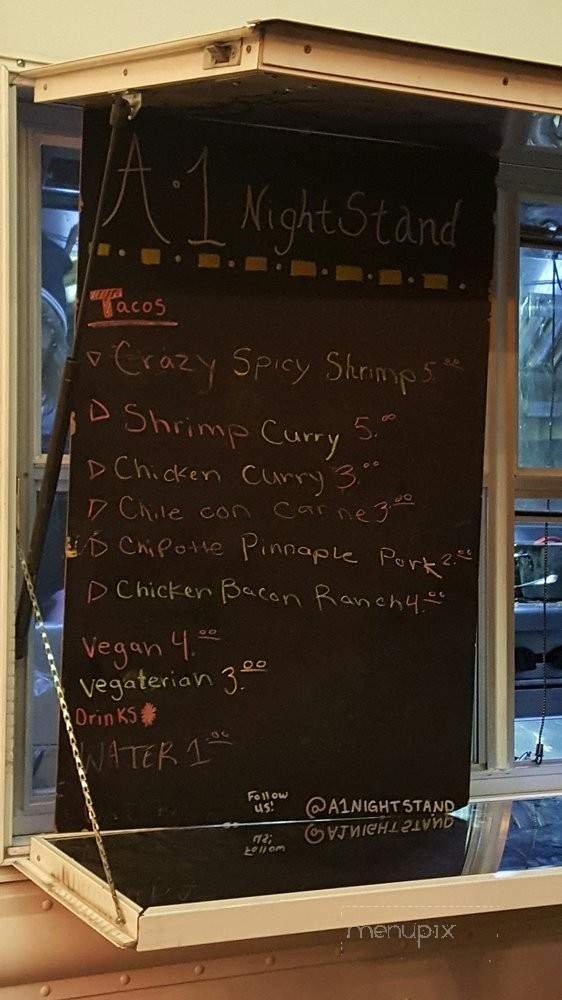 A·1 NightStand
Tacos
Crazy Spicy Shrimp 5.00
Shrimp Curry 5.00
Chicken Curry 3.00
Chile con Carne 3.00
Chipotle Pinnaple Pork 2.00
Chicken Bacon Ranch 4.00
Vegan 4.00
Vegaterian 3.00
Drinks
WATER 1.00
Follow us!
@A1NIGHTSTAND
@A1NIGHTSTAND
Follow us!
menupix